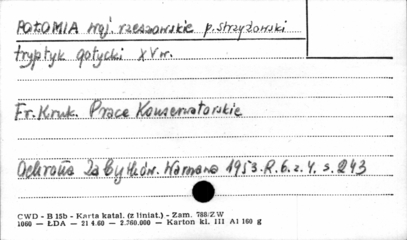 POŁOMIA woj. rzeszowskie p. Strzyżowski
tryptyk gotycki XV w.
Fr. Kruk. Prace Konserwatorskie
Ochrona Zabytków. Warszawa 1953. R. 6. z. 4. s. 243
CWD - B 15b - Karta katal. (z liniat.) - Zam. 788/ZW
1060 — ŁDA — 21 4.60 — 2.760.000 — Karton kl. III A1 160 g